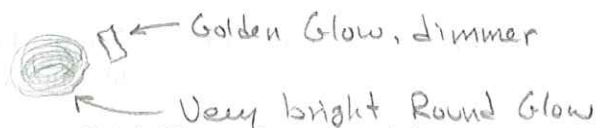 Golden Glow, dimmer
Very bright Round Glow